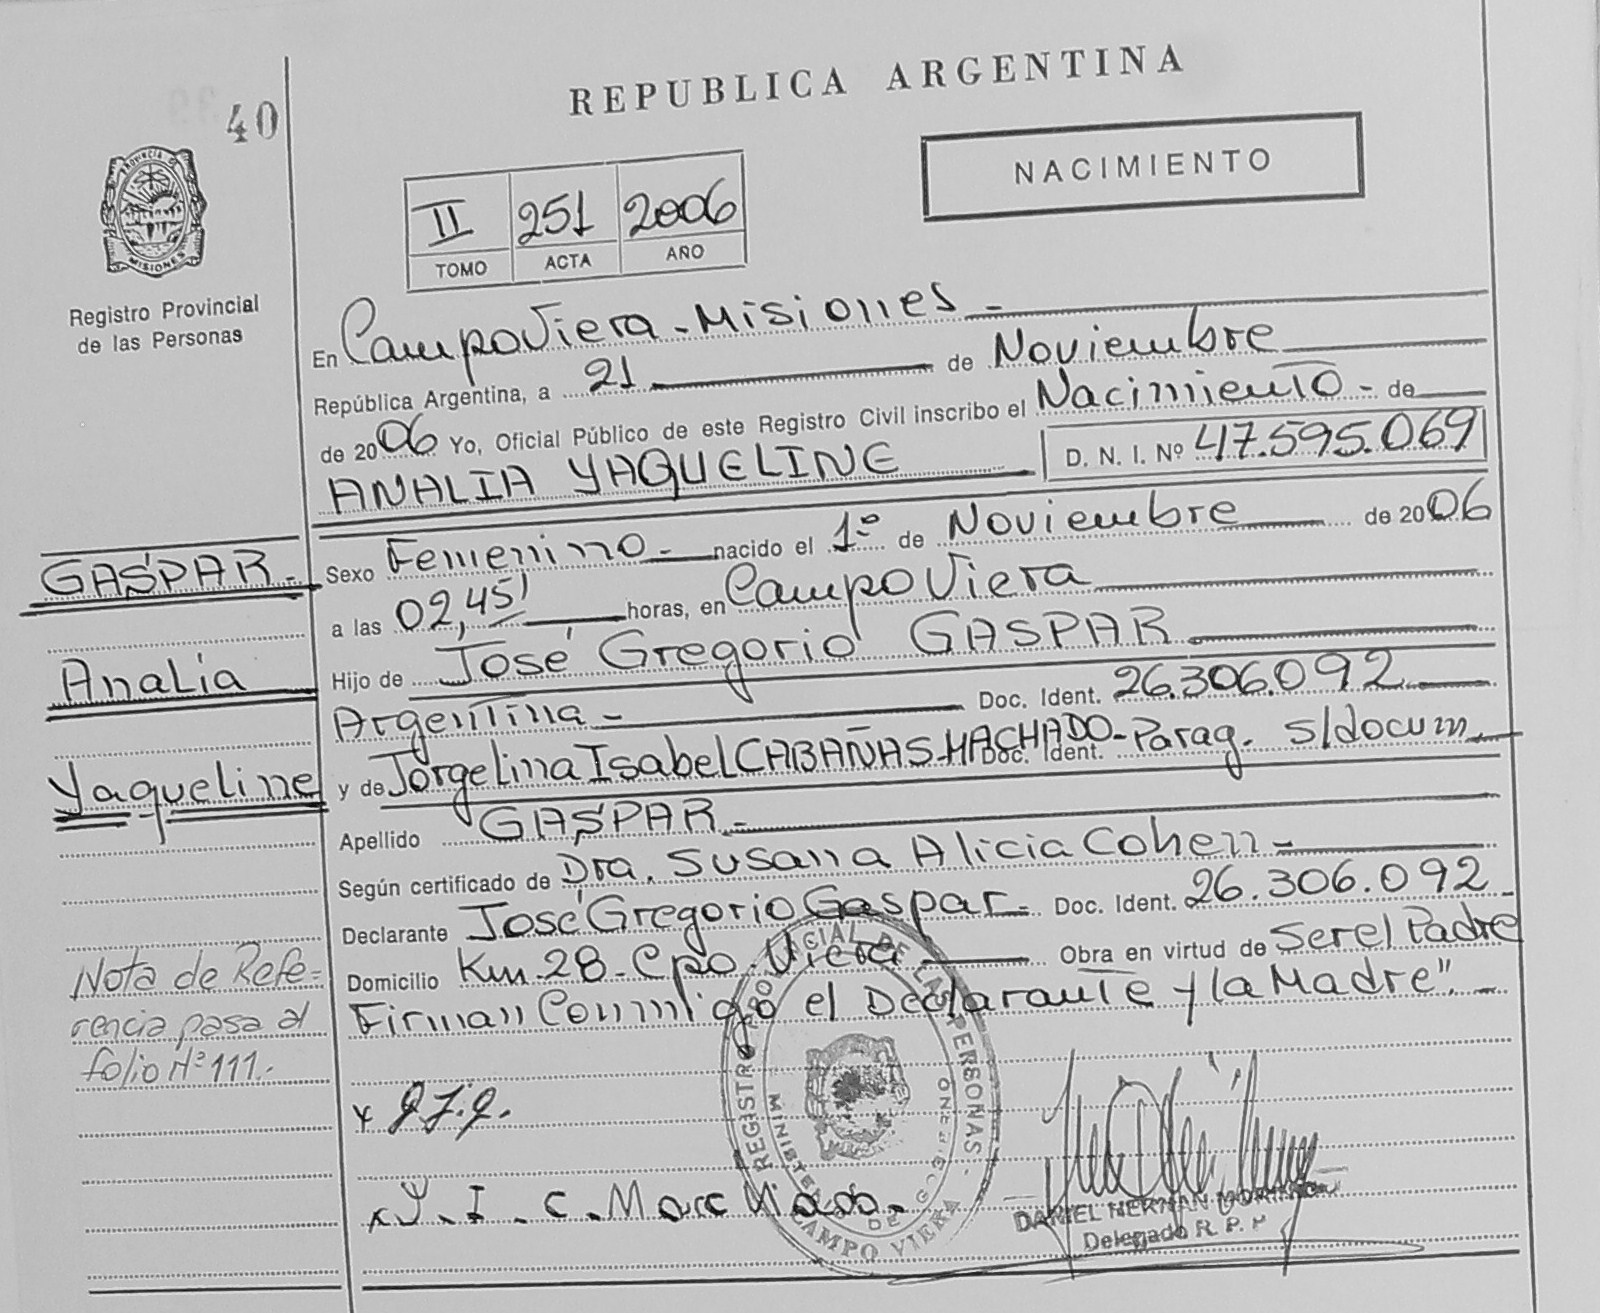 40
REPUBLICA ARGENTINA
NACIMIENTO
PROVINCIA DE MISIONES
Registro Provincial
de las Personas
II 251 2006
TOMO ACTA AÑO
En Campo Viera - Misiones -
República Argentina, a 21 de Noviembre
de 2006 Yo, Oficial Público de este Registro Civil inscribo el Nacimiento - de
ANALIA YAQUELINE D. N. I. Nº 47.595.069
GASPAR -
Analia
Yaqueline
Sexo Femenino - nacido el 1º de Noviembre de 2006
a las 02,45' horas, en Campo Viera
Hijo de José Gregorio GASPAR
Argentina - Doc. Ident. 26.306.092
y de Jorgelina Isabel CABAÑAS MACHADO - Doc. Ident. Parag. s/docum
Apellido GASPAR -
Según certificado de Dra. Susana Alicia Cohen -
Declarante José Gregorio Gaspar - Doc. Ident. 26.306.092
Domicilio Km 28 - Cpo. Viera Obra en virtud de Ser el Padre
Firman Conmigo el Declarante y la Madre". -
Nota de Refe-
rencia pasa al
folio Nº 111.-
x J.J.G.
REGISTRO PROVINCIAL DE LAS PERSONAS -
CAMPO VIERA
DANIEL HERNAN
Delegado R. P. P